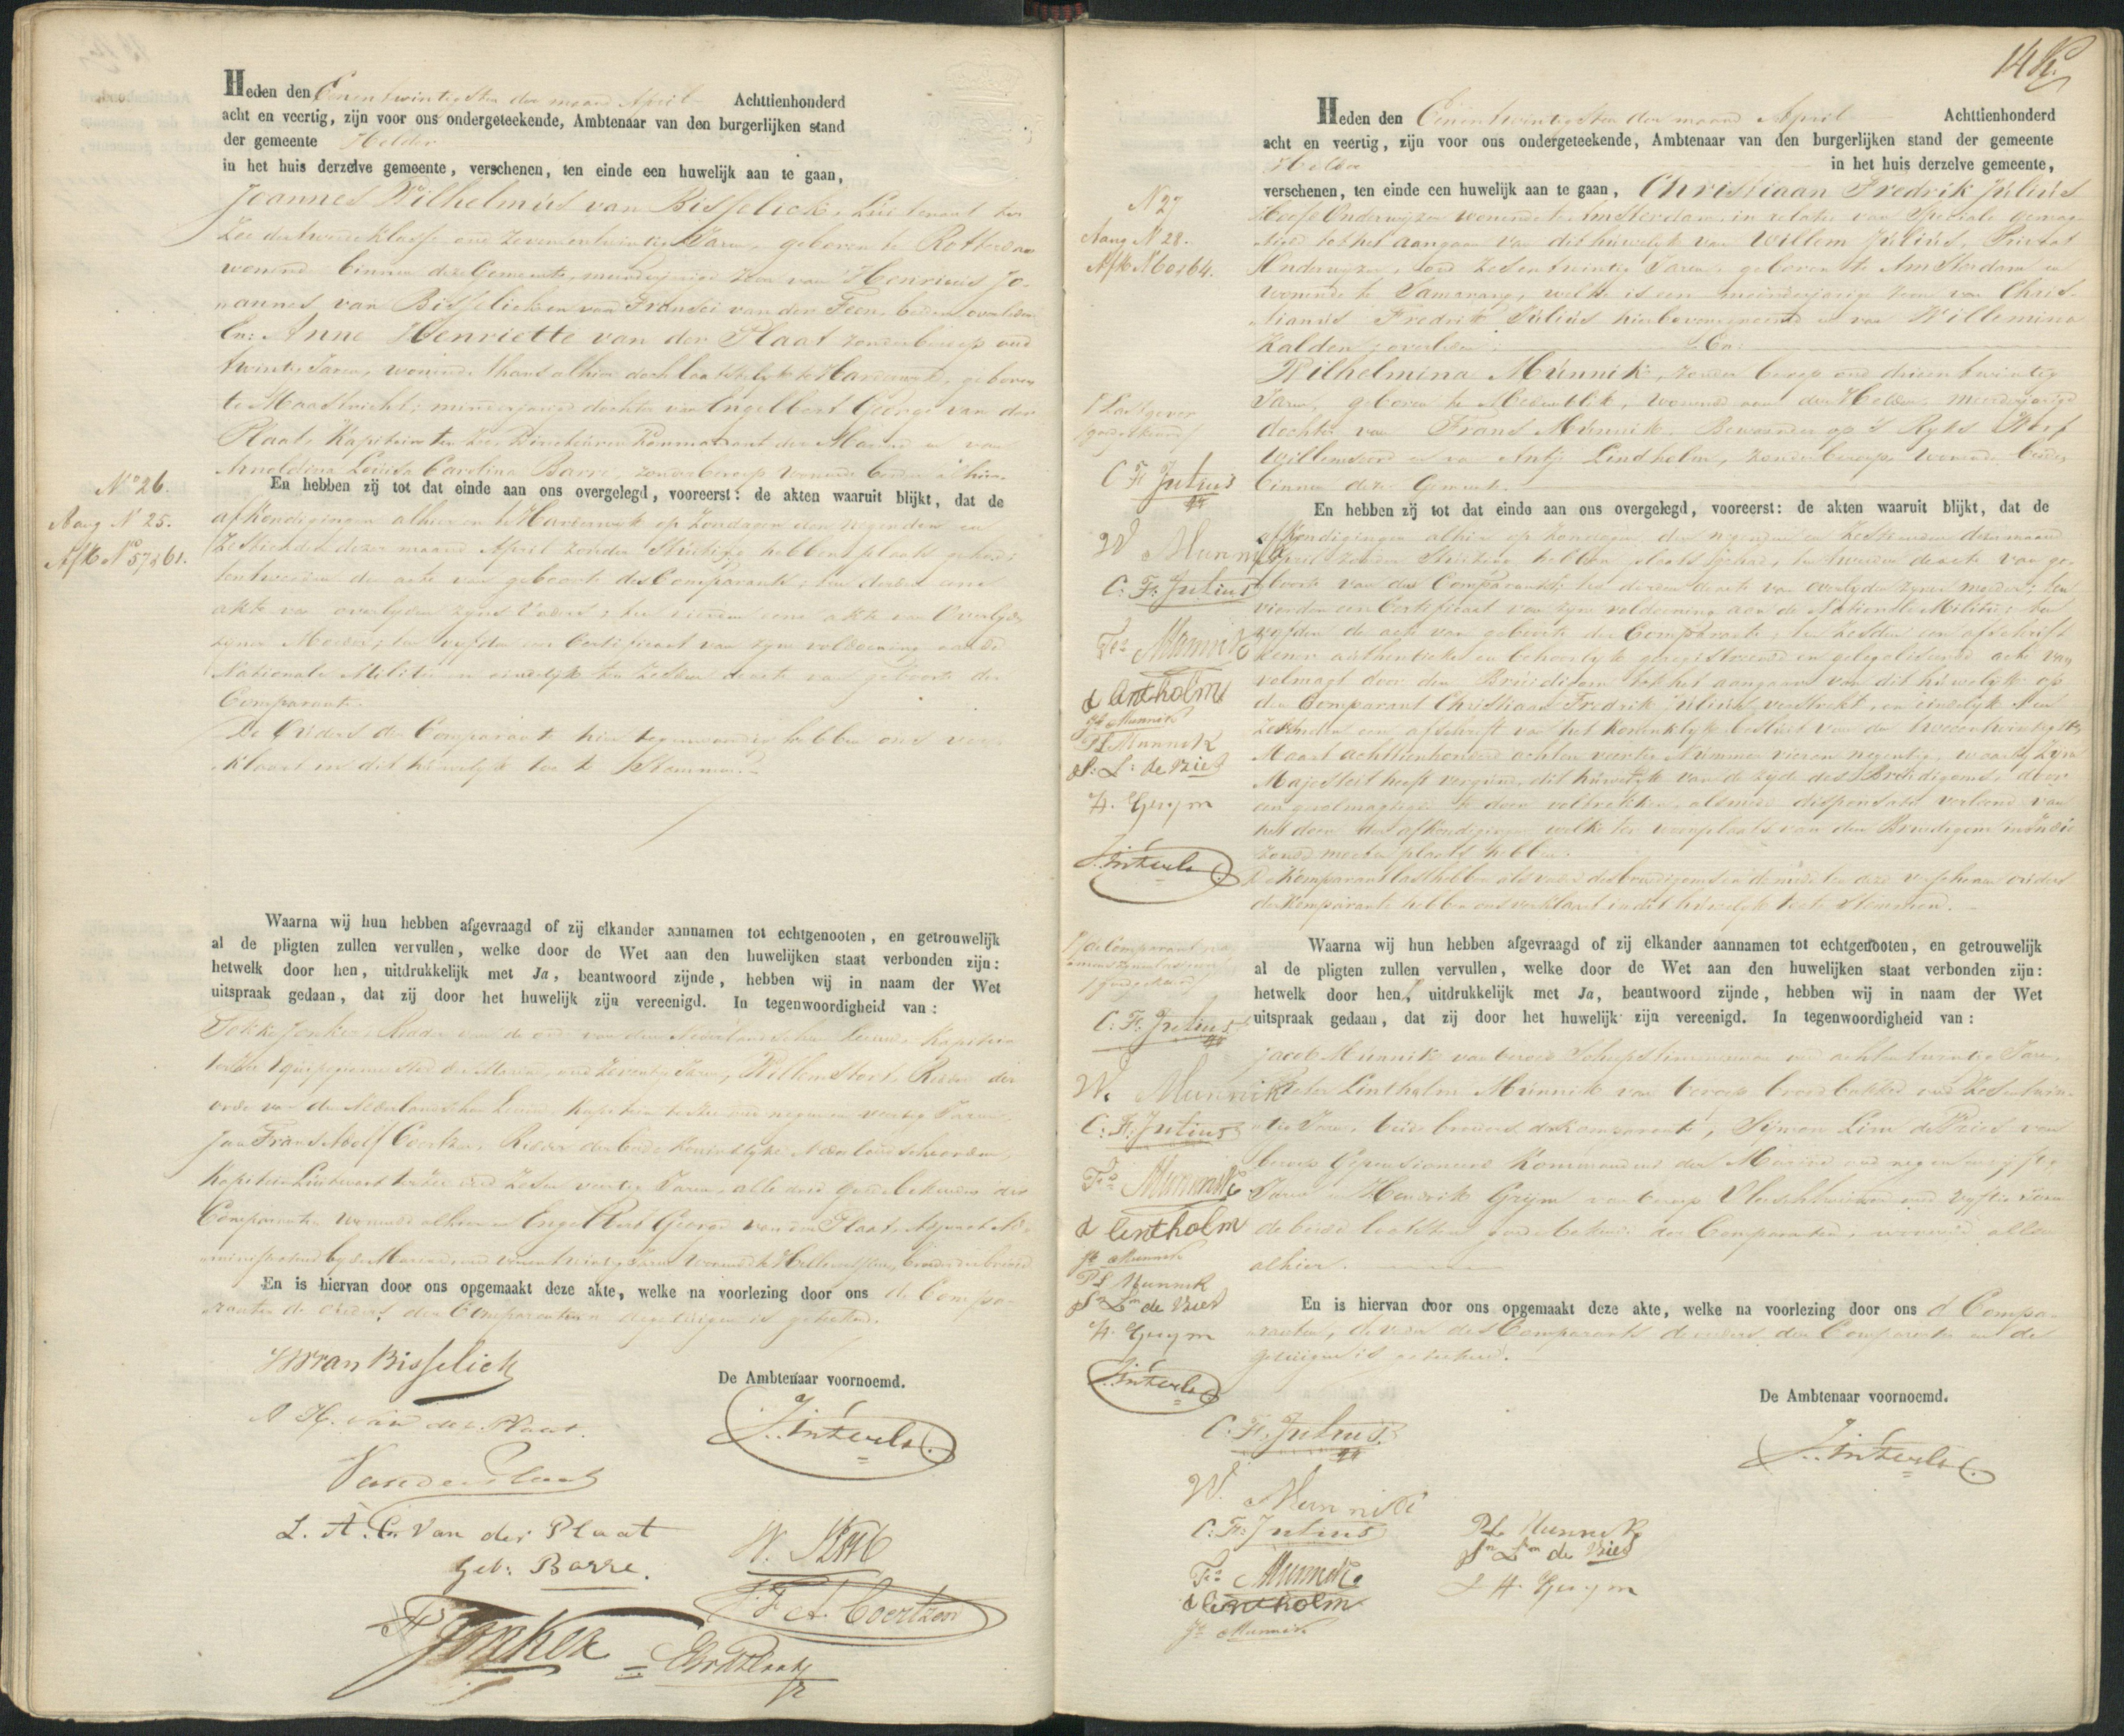 Heden den Eenentwintigsten der maand April Achttienhonderd
acht en veertig, zijn voor ons ondergeteekende, Ambtenaar van den burgerlijken stand
der gemeente Helder
in het huis derzelve gemeente, verschenen, ten einde een huwelijk aan te gaan,
Joannes Wilhelmus van Bisselick, Luitenant ter
Zee der tweede klasse oud zevenentwintig Jaren, geboren te Rotterdam
wonende binnen deze Gemeente, meerderjarige zoon van Henricus Jo-
annes van Bisselick en van Fransci van der Feen, beiden overleden
En: Anne Henriette van der Plaat zonder beroep oud
twintig Jaren, wonende thans alhier doch laatstelyk te Harderwyk, geboren
te Maastricht; minderjarige dochter van Engelbert George van der
Plaat, Kapitein ter Zee, Directeur en Kommandant der Marine en van
Arnoldina Louisa Carolina Barre, zonder beroep wonende beiden alhier.
No 26.
Aang N 25.
Afk No 57 & 61.
En hebben zij tot dat einde aan ons overgelegd, vooreerst: de akten waaruit blijkt, dat de
afkondigingen alhier en te Harderwyk op Zondagen den negenden en
zestienden dezer maand April zonder Stuiting hebben plaats gehad;
ten tweeden de acte van geboorte des Comparants; ten derden eene
akte van overlyden zyns Vaders; ten vierden eene akte van Overlyden
zyner Moeder; ten vyfden een Certificaat van zyne voldoening aan de
Nationale Militie en eindelyk ten zesden de acte van geboorte der
Comparante.
De Ouders der Comparante hier tegenwoordig hebben ons ver-
klaard in dit huwelyk toe te Stemmen.
Waarna wij hun hebben afgevraagd of zij elkander aannamen tot echtgenooten, en getrouwelijk
al de pligten zullen vervullen, welke door de Wet aan den huwelijken staat verbonden zijn:
hetwelk door hen, uitdrukkelijk met Ja, beantwoord zijnde, hebben wij in naam der Wet
uitspraak gedaan, dat zij door het huwelijk zijn vereenigd. In tegenwoordigheid van:
Jonker, Ridder van de orde van den Nederlandschen Leeuw, Kapitein
ter Zee Equipagiemeester der Marine, oud zeventig Jaren, Willem Stort, Ridder der
orde van den Nederlandschen Leeuw, Kapitein ter Zee oud negenen veertig Jaren,
Jan Frans Adolf Coertzen, Ridder der beide Koninklyke Nederlandsche orden,
Kapitein Luitenant ter Zee oud zesen veertig Jaren, alle drie goede bekenden der
Comparanten wonende alhier en Engelbert George van der Plaat, Adjunct Ad-
ministrateur by de Marine, oud eenentwintig Jaren wonende te Hellevoetsluis, broeder der bruid
En is hiervan door ons opgemaakt deze akte, welke na voorlezing door ons de Compa-
ranten de ouders der Comparante en de getuigen is geteekend.
JW van Bisselick
A H. van der Plaat.
Van der Plaat
L. A. C. Van der Plaat
Geb: Barre.
Jonker
De Ambtenaar voornoemd.
W. Stort
J. F. A. Coertzen
14
Heden den Eenentwintigsten der maand April Achttienhonderd
acht en veertig, zijn voor ons ondergeteekende, Ambtenaar van den burgerlijken stand der gemeente
Helder in het huis derzelve gemeente,
verschenen, ten einde een huwelijk aan te gaan, Christiaan Fredrik Julius
Hoofd Onderwyzer wonende te Amsterdam, in relatie van Speciale gemag-
tigde tot het aangaan van dit huwelyk van Willem Julius, Privaat
Onderwyzer, oud zesentwintig Jaren, geboren te Amsterdam en
wonende te Samarang, welke is een meerderjarige zoon van Chris-
tianus Fredrik Julius hierbovengenoemd en van Willemina
Kalden; overleden En:
Wilhelmina Munnik, zonder beroep oud drieentwintig
Jaren, geboren te Medemblik, wonende aan den Helder, meerderjarige
dochter van Frans Munnik, Bewaarder op 's Ryks Werf
Willemsoord en van Antje Lindholm, zonder beroep, wonende beiden
binnen deze Gemeente.
N 27
Aang N 28.
Afk N 60 & 64.
Lastgever
goedgekeurd
C F Julius
W Munnik
C: F: Julius
Fs Munnik
A Lintholm
Jb Munnik
PL Munnik
S: L: de Vries
H. Gruym
En hebben zij tot dat einde aan ons overgelegd, vooreerst: de akten waaruit blijkt, dat de
afkondigingen alhier op Zondagen den negenden en Zestienden dezer maand
April zonder Stuiting hebben plaats gehad, ten tweeden de acte van ge-
boorte van des Comparants; ten derden de acte van overlyden zyner moeder; ten
vierden een Certificaat van zyne voldoening aan de Nationale Militie; ten
vyfden de acte van geboorte der Comparante; ten zesden een afschrift
eener authentieke en behoorlyk geregistreerde en gelegaliseerde acte van
volmagt door den Bruidegom tot het aangaan van dit huwelyk op
den Comparant Christiaan Fredrik Julius verstrekt, en eindelyk ten
zevenden een afschrift van het Koninklyk besluit van den tweeentwintigsten
Maart achttienhonderd achten veertig Nummer vieren negentig, waarby Zyne
Majesteit heeft vergund, dit huwelyk van de zyde des Bruidegoms, door
een gevolmagtigde te doen voltrekken, alsmede dispensatie verleend van
het doen der afkondigingen welke ter woonplaats van den Bruidegom in Indie
zoude moeten plaats hebben.
De Komparant lasthebber als vader des bruidegoms en de mede ten deze verschenen ouders
der Komparante hebben ons verklaard in dit huwelyk toe te stemmen.
Waarna wij hun hebben afgevraagd of zij elkander aannamen tot echtgenooten, en getrouwelijk
al de pligten zullen vervullen, welke door de Wet aan den huwelijken staat verbonden zijn:
hetwelk door hen, uitdrukkelijk met Ja, beantwoord zijnde, hebben wij in naam der Wet
uitspraak gedaan, dat zij door het huwelijk zijn vereenigd. In tegenwoordigheid van:
de Comparant na-
mens zynen lastgever
goedgekeurd
C. F. Julius
W. Munnik
C: F: Julius
Fs Munnik
A Lintholm
Jb Munnik
PL Munnik
Sn Lm de Vries
H. Gruym
Jacob Munnik van beroep Scheepstimmerman oud achtentwintig Jaren,
Pieter Lintholm Munnik van beroep broodbakker oud zesentwin-
tig Jaren, beide broeders der Komparante, Symon Lim de Vries van
beroep Gepensioneerd Kommandeur der Marine oud negenenvyftig
Jaren en Hendrik Gruym van beroep Vleeschhouwer oud vyftig Jaren
de beide laatsten goede bekenden der Comparanten, wonende allen
alhier.
En is hiervan door ons opgemaakt deze akte, welke na voorlezing door ons de Compa-
ranten, de vader des Comparants de ouders der Comparante en de
getuigen is geteekend.
De Ambtenaar voornoemd.
C. F. Julius
W. Munnik
C: F: Julius
Fs Munnik
A Lintholm
Jb Munnik
PL Munnik
Sn Lm de Vries
H. Gruym